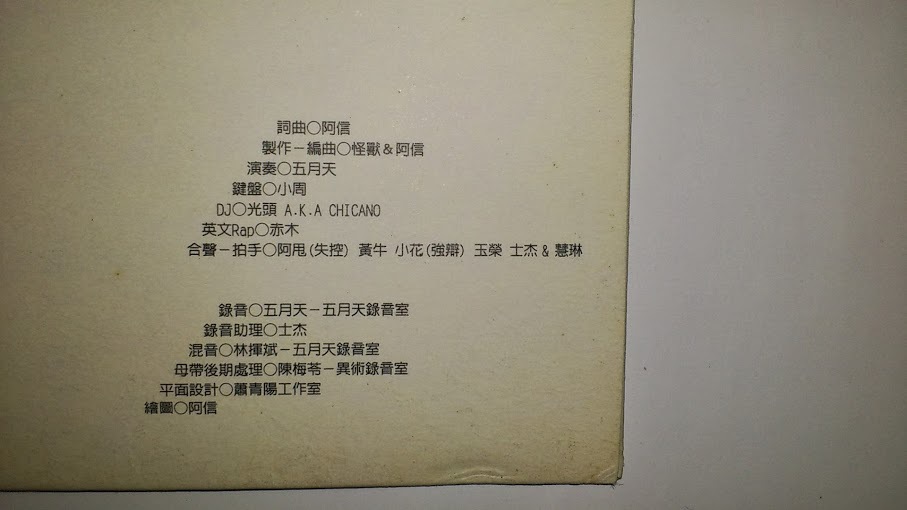 詞曲○阿信
製作－編曲○怪獸＆阿信
演奏○五月天
鍵盤○小周
DJ○光頭 A.K.A CHICANO
英文Rap○赤木
合聲－拍手○阿甩(失控) 黃牛 小花(強辯) 玉榮 士杰＆慧琳
錄音○五月天－五月天錄音室
錄音助理○士杰
混音○林揮斌－五月天錄音室
母帶後期處理○陳梅苓－異術錄音室
平面設計○蕭青陽工作室
繪圖○阿信